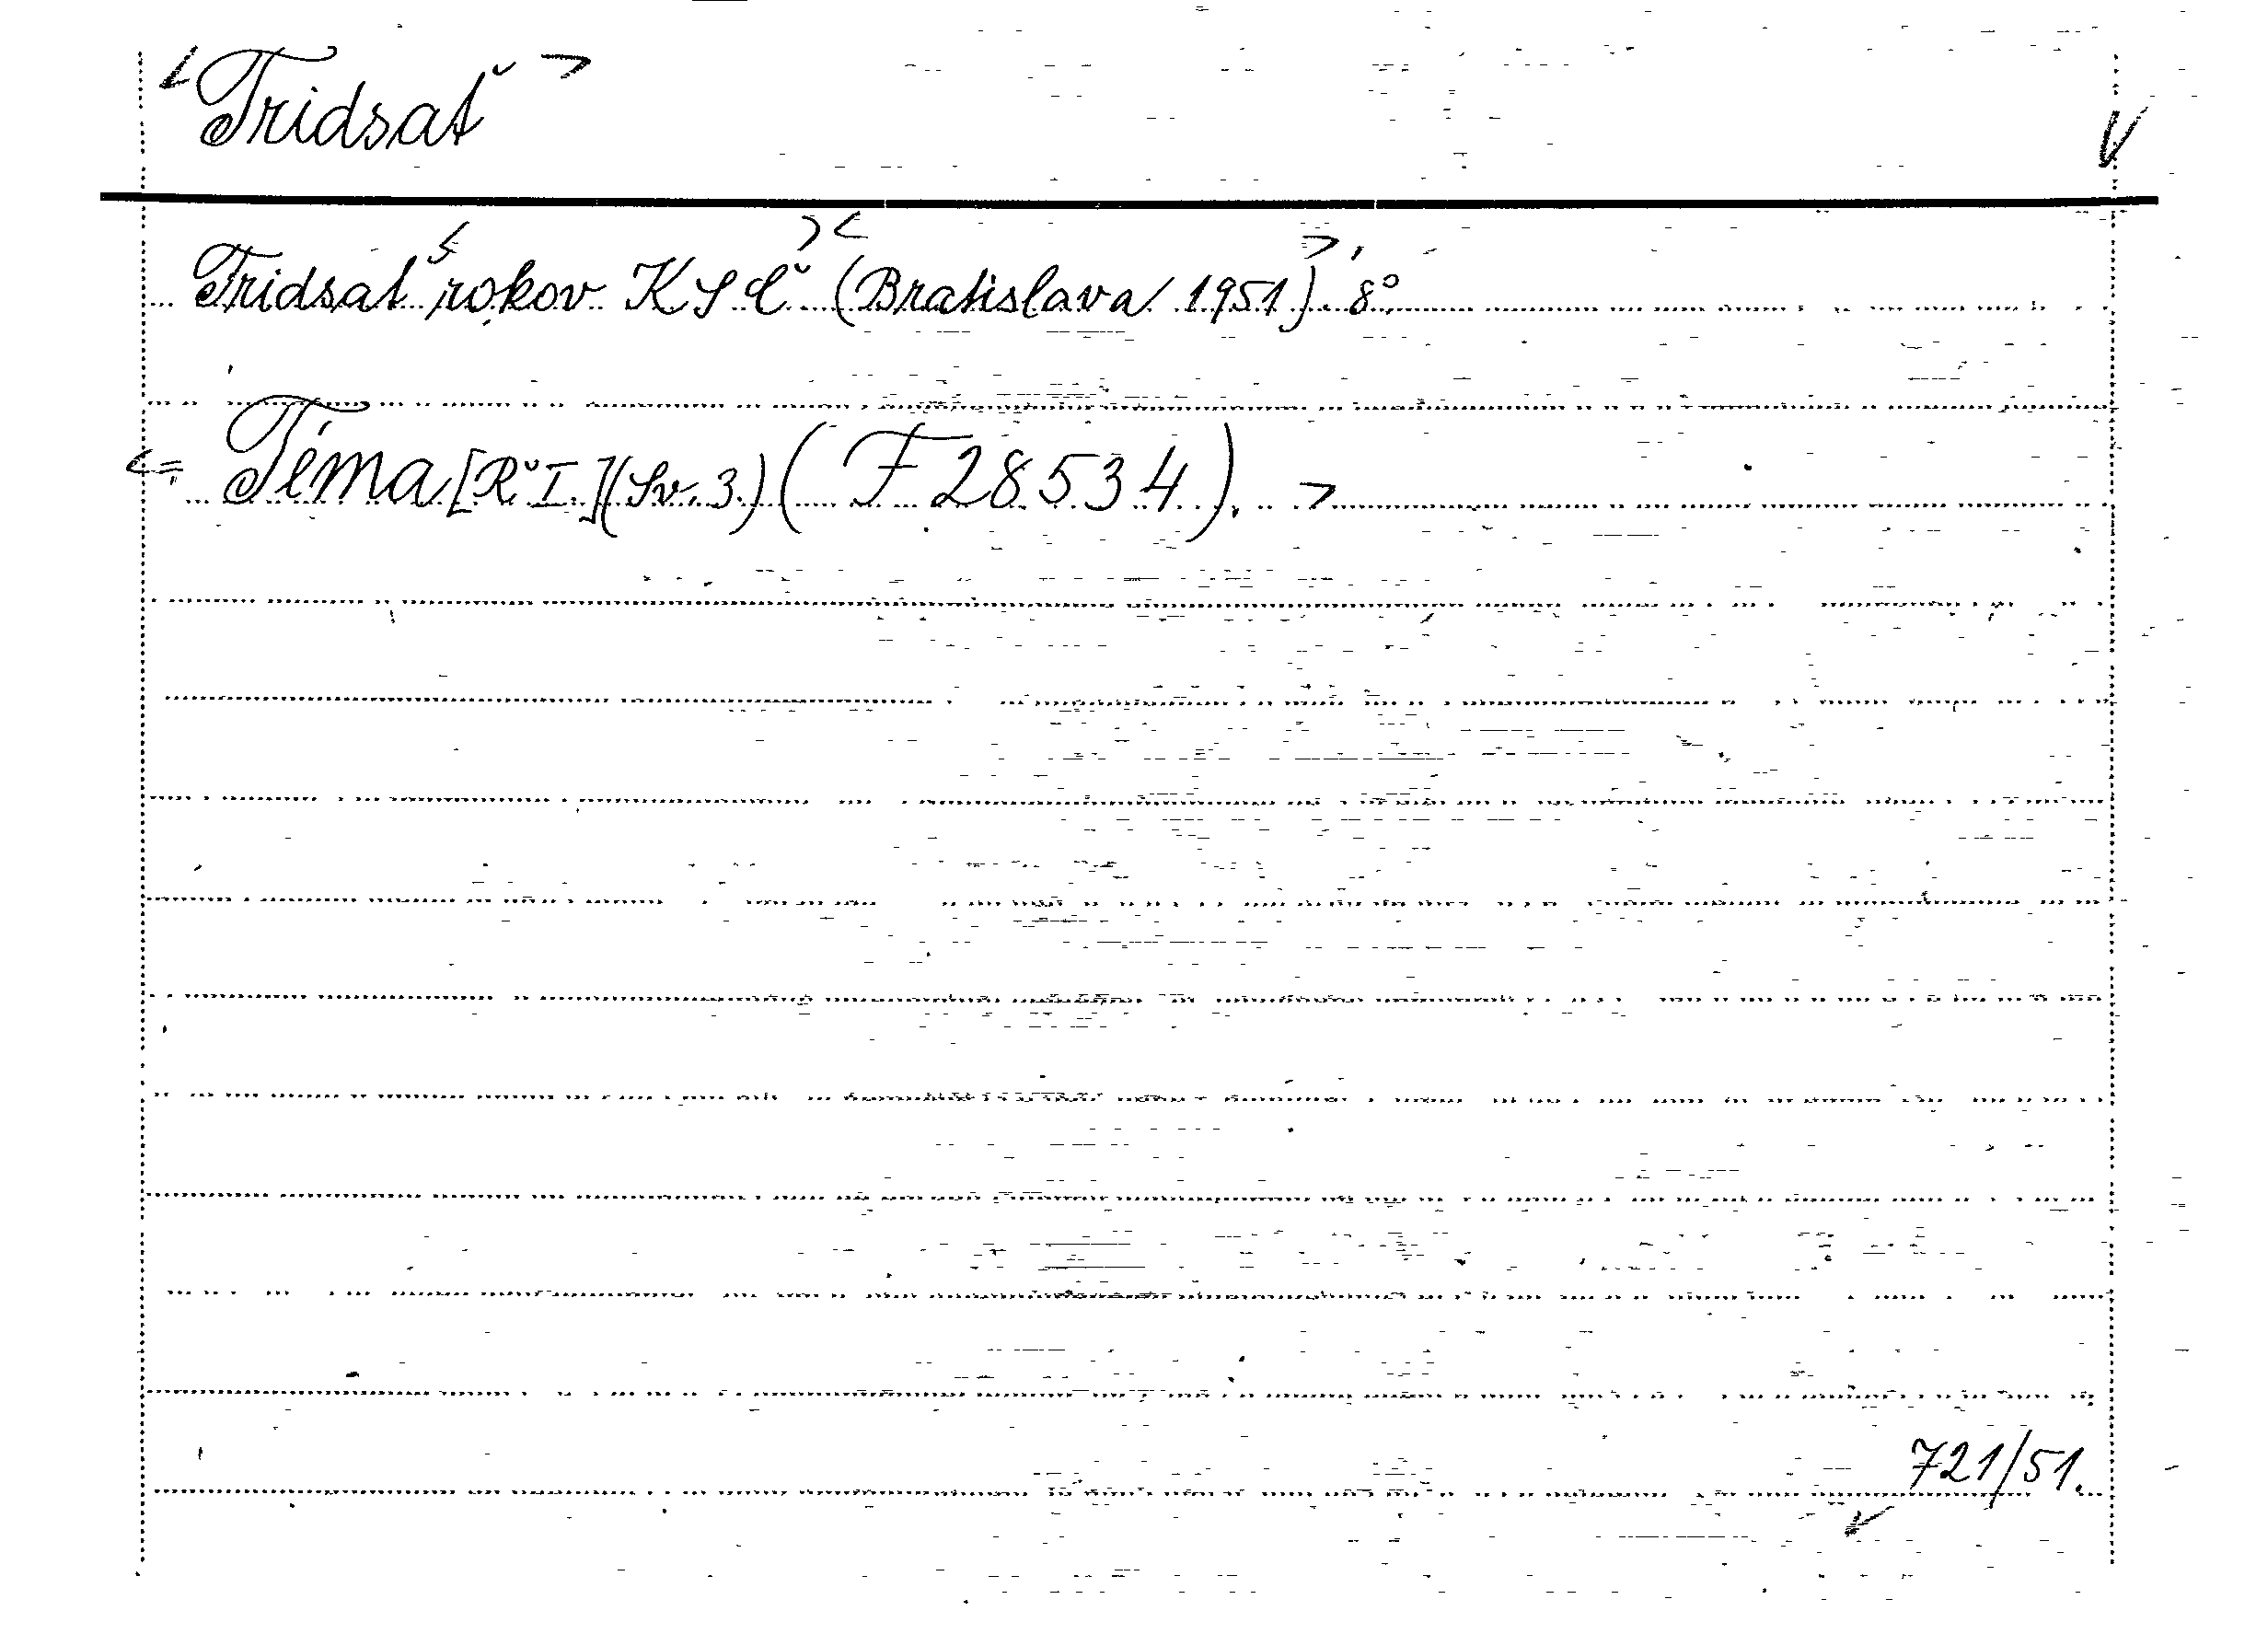 <Tridsať>
V
Tridsať <rokov KSČ> <(Bratislava 1951)>. 8°
<= Téma [Ř I.] (Sv. 3) (F 28534). >
721/51.
V